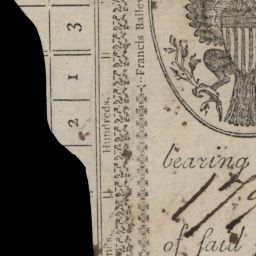 3
1
2
Hundreds.
Francis Bailey
bearing
of said